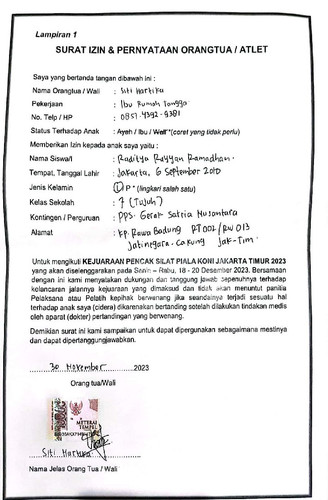 Lampiran 1
SURAT IZIN & PERNYATAAN ORANGTUA / ATLET
Saya yang bertanda tangan dibawah ini :
Nama Orangtua / Wali : Siti Hartika
Pekerjaan : Ibu Rumah Tangga
No. Telp / HP : 0857-4392-9381
Status Terhadap Anak : Ayah / Ibu / Wali *(coret yang tidak perlu)
Memberikan Izin kepada anak saya yaitu :
Nama Siswa/i : Raditya Rayyan Ramadhan.
Tempat, Tanggal Lahir : Jakarta, 6 September 2010
Jenis Kelamin : L/P * (lingkari salah satu)
Kelas Sekolah : 7 (Tujuh)
Kontingen / Perguruan : PPS. Gerak Satria Nusantara
Alamat : Kp. Rawa Badung RT 007 / RW 013
Jatinegara - Cakung Jak-Tim.
Untuk mengikuti KEJUARAAN PENCAK SILAT PIALA KONI JAKARTA TIMUR 2023
yang akan diselenggarakan pada Senin – Rabu, 18 - 20 Desember 2023. Bersamaan
dengan ini kami menyatakan dukungan dan tanggung jawab sepenuhnya terhadap
kelancaran jalannya kejuaraan yang dimaksud dan tidak akan menuntut panitia
Pelaksana atau Pelatih kepihak berwenang jika seandainya terjadi sesuatu hal
terhadap anak saya (cidera) dikarenakan bertanding setelah dilakukan tindakan medis
oleh aparat (dokter) pertandingan yang berwenang.
Demikian surat ini kami sampaikan untuk dapat dipergunakan sebagaimana mestinya
dan dapat dipertanggungjawabkan.
30 November 2023
Orang tua/Wali
METERAI
TEMPEL
Siti Hartika
Nama Jelas Orang Tua / Wali